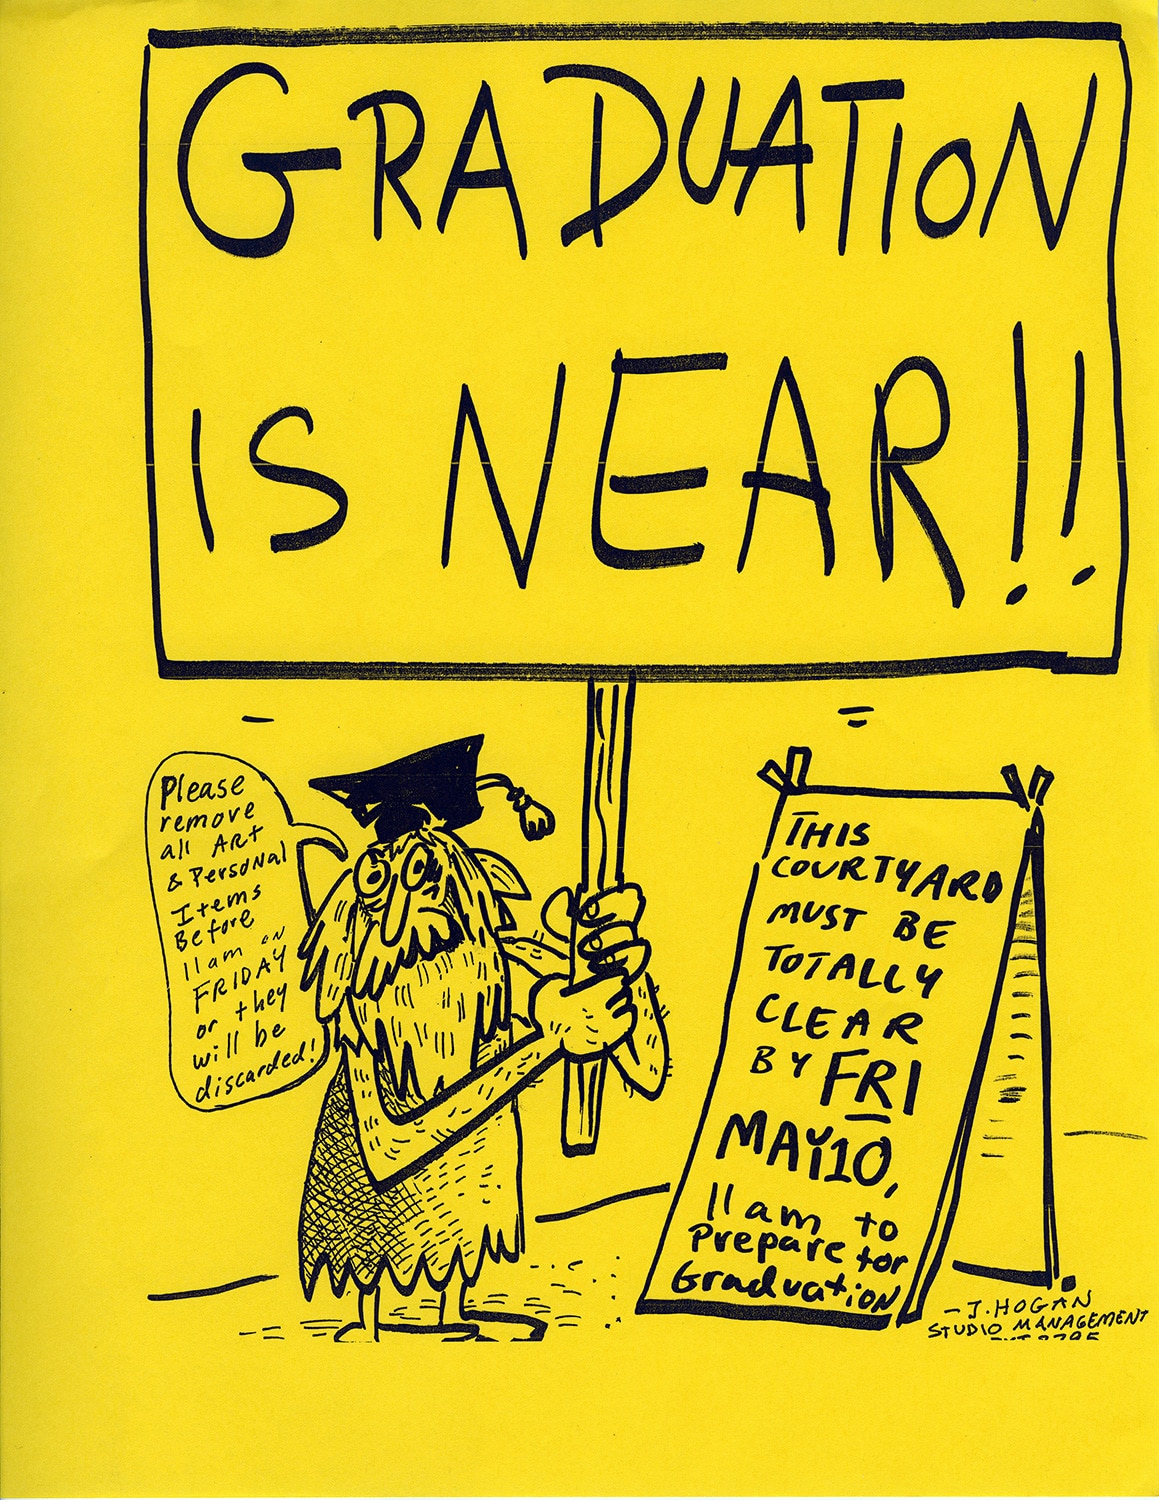 GRADUATION
IS NEAR!!
Please
remove
all ART
& Personal
Items
Before
11am on
FRIDAY
or they
will be
discarded!
THIS
COURTYARD
MUST BE
TOTALLY
CLEAR
BY FRI
MAY 10,
11am to
Prepare for
Graduation
-J. HOGAN
STUDIO MANAGEMENT